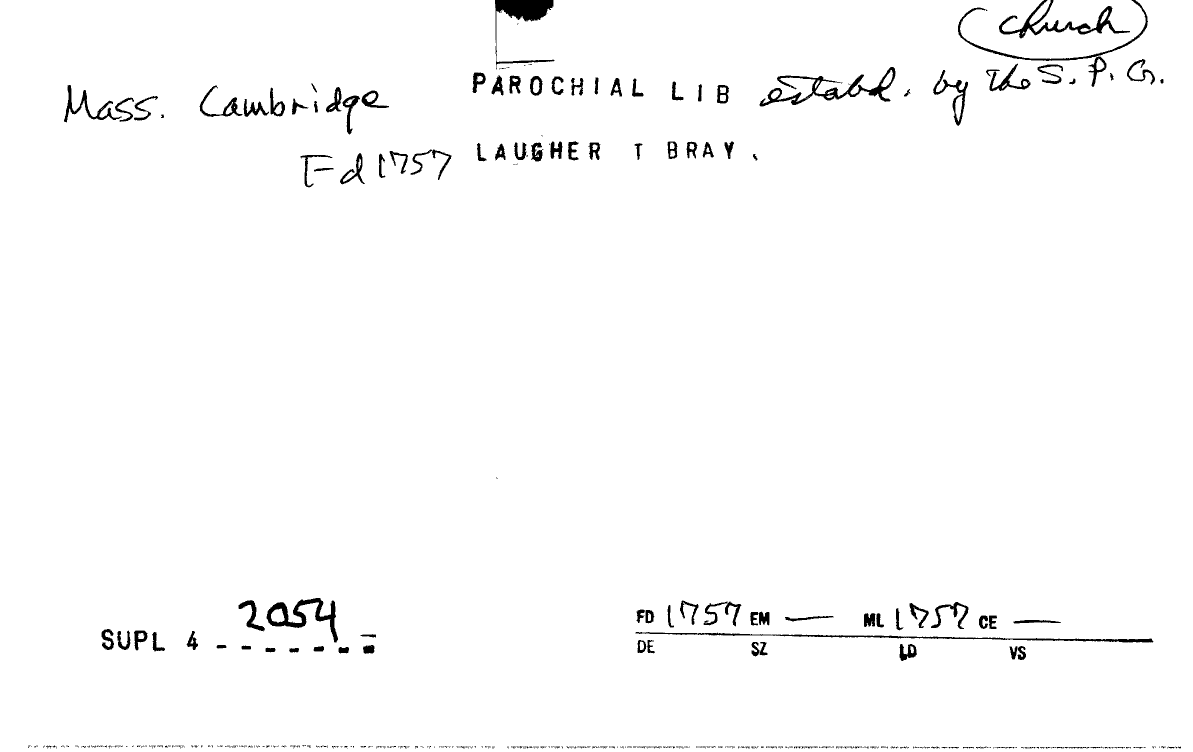 Church
Mass. Cambridge PAROCHIAL LIB estabd. by the S. P. G.
Fd 1757 LAUGHER T BRAY.
2054
SUPL 4 - - - - - - -
FD 1757 EM — ML 1757 CE —
DE SZ LD VS